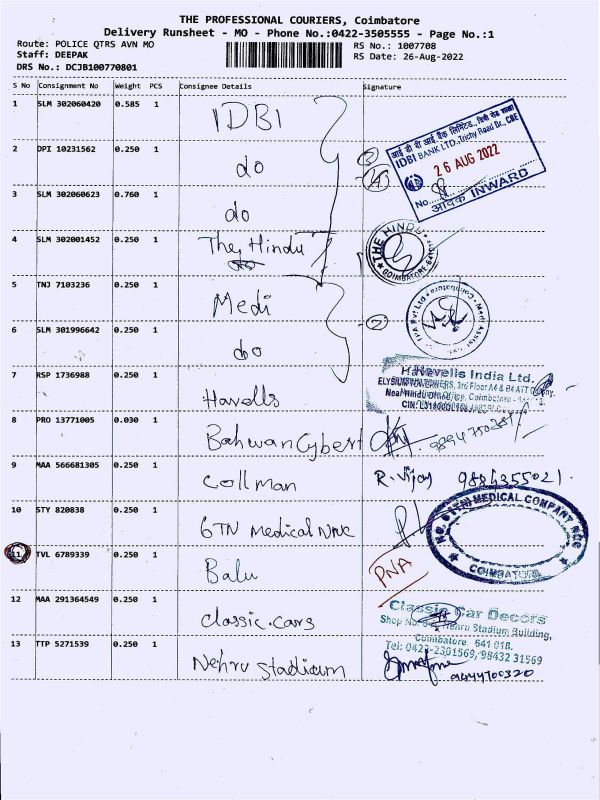 THE PROFESSIONAL COURIERS, Coimbatore
Delivery Runsheet - MO - Phone No.:0422-3505555 - Page No.:1
Route: POLICE QTRS AVN MO
RS No.: 1007708
Staff: DEEPAK
RS Date: 26-Aug-2022
DRS No.: DCJB100770801
S No Consignment No Weight PCS Consignee Details Signature
1 SLM 302060420 0.585 1 IDBI
2 DPI 10231562 0.250 1 do
3 SLM 302060623 0.760 1 do
आई डी बी आई बैंक लिमिटेड
IDBI BANK LTD., Trichy Road Br., CBE
26 AUG 2022
No.
आवक INWARD
4 SLM 302001452 0.250 1 The Hindu
THE HINDU
COIMBATORE
5 TNJ 7103236 0.250 1 Medi
6 SLM 301996642 0.250 1 do
2
7 RSP 1736988 0.250 1 Havells
Havells India Ltd.
8 PRO 13771005 0.030 1 Bahwan Cybert
9 MAA 566681305 0.250 1 Collman R. Vijay 9884355021
10 STY 820838 0.250 1 GTN Medical
MEDICAL COMPANY
COIMBATORE
11 TVL 6789339 0.250 1 Balu PNA
12 MAA 291364549 0.250 1 classic.cars
Classic Car Decors
Nehru Stadium Building,
Coimbatore 641 018.
Tel: 0422-2301569, 98432 31569
13 TTP 5271539 0.250 1 Nehru Stadium
9444700320